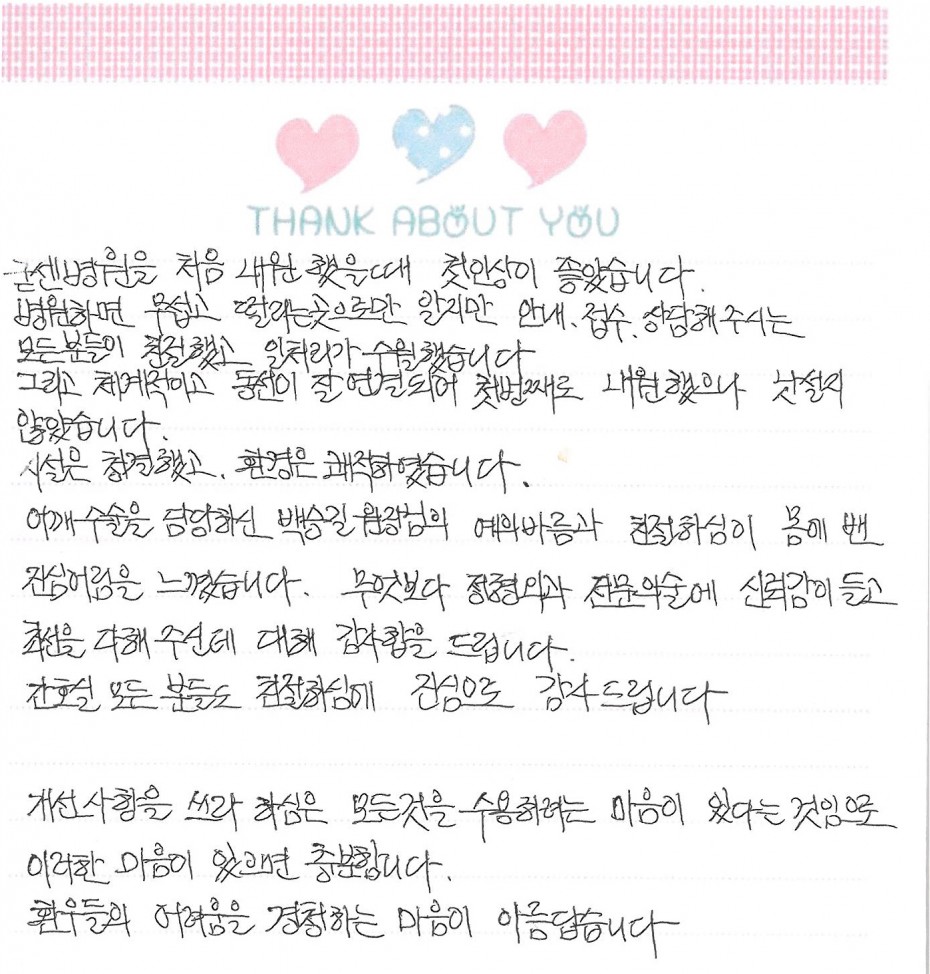 THANK ABOUT YOU
굳센병원을 처음 내원 했을때 첫인상이 좋았습니다.
병원하면 무섭고 떨리는곳으로만 알지만 안내.접수.상담해주시는
모든분들이 친절했고 일처리가 수월했습니다
그리고 체계적이고 동선이 잘연결되어 첫번째로 내원했으나 낫설지
않았습니다.
시설은 청결했고. 환경은 쾌적하였습니다.
어깨수술을 담당하신 백승길 원장님의 예의바름과 친절하심이 몸에 밴
진심어림을 느꼈습니다. 무엇보다 정형외과 전문의술에 신뢰감이들고
최선을 다해 주신데 대해 감사함을 드립니다.
간호실 모든 분들도 친절하심에 진심으로 감사드립니다
개선사항을 쓰라 하심은 모든것을 수용하려는 마음이 있다는것임으로
이러한 마음이 있으면 충분합니다.
환우들의 어려움을 경청하는 마음이 아름답습니다